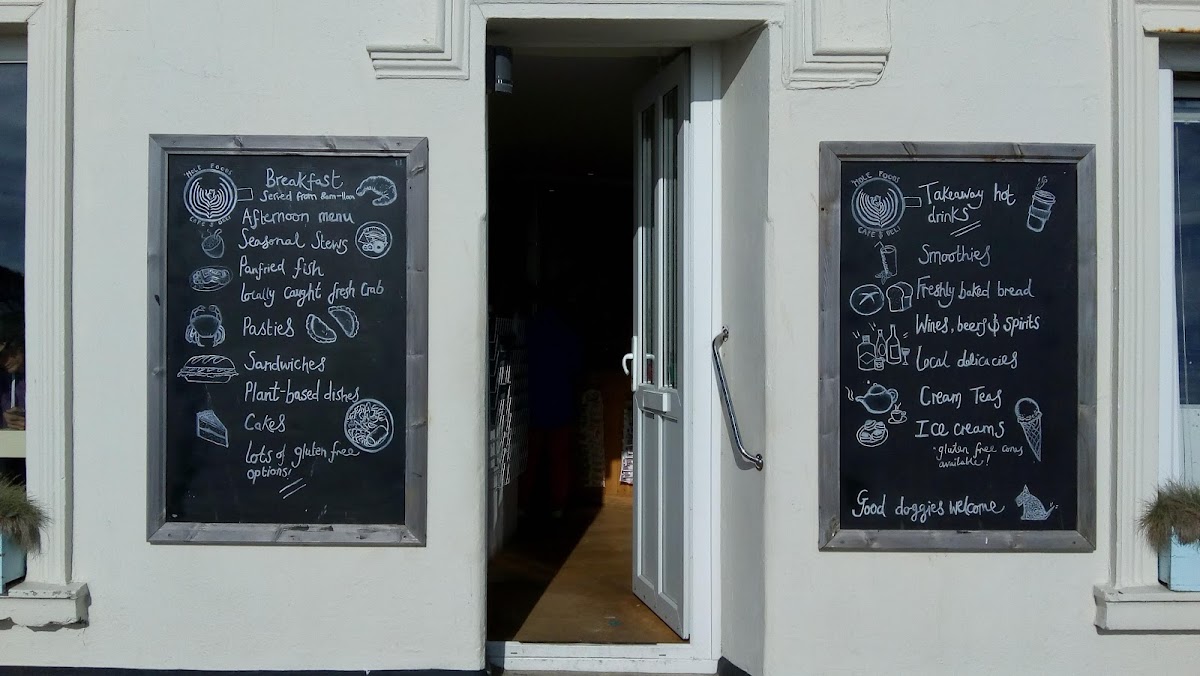 'Hole Foods
Cafe & Deli
Breakfast
Served from 8am-11am
Afternoon menu
Seasonal Stews
Panfried fish
locally caught fresh Crab
Pasties
Sandwiches
Plant-based dishes
Cakes
lots of gluten free
options!
'Hole Foods
Cafe & Deli
Takeaway hot
drinks
Smoothies
Freshly baked bread
Wines, beers & spirits
Local delicacies
Cream Teas
Ice creams
*gluten free cones
available!
Good doggies welcome